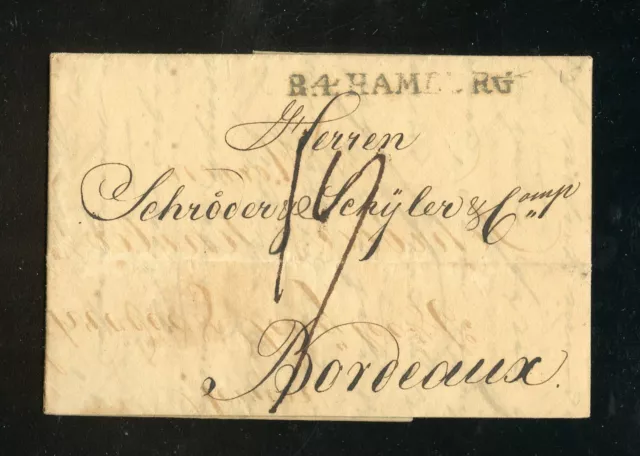 R.4. HAMBURG
Herren
Schröder & Schÿler & Comp
19
Bordeaux.